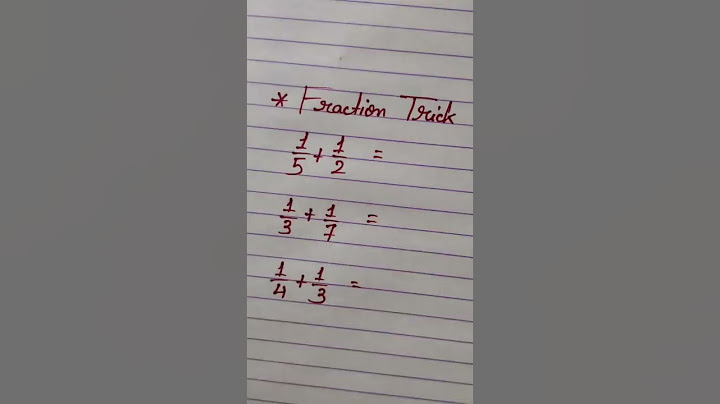 * Fraction Trick
1/5 + 1/2 =
1/3 + 1/7 =
1/4 + 1/3 =